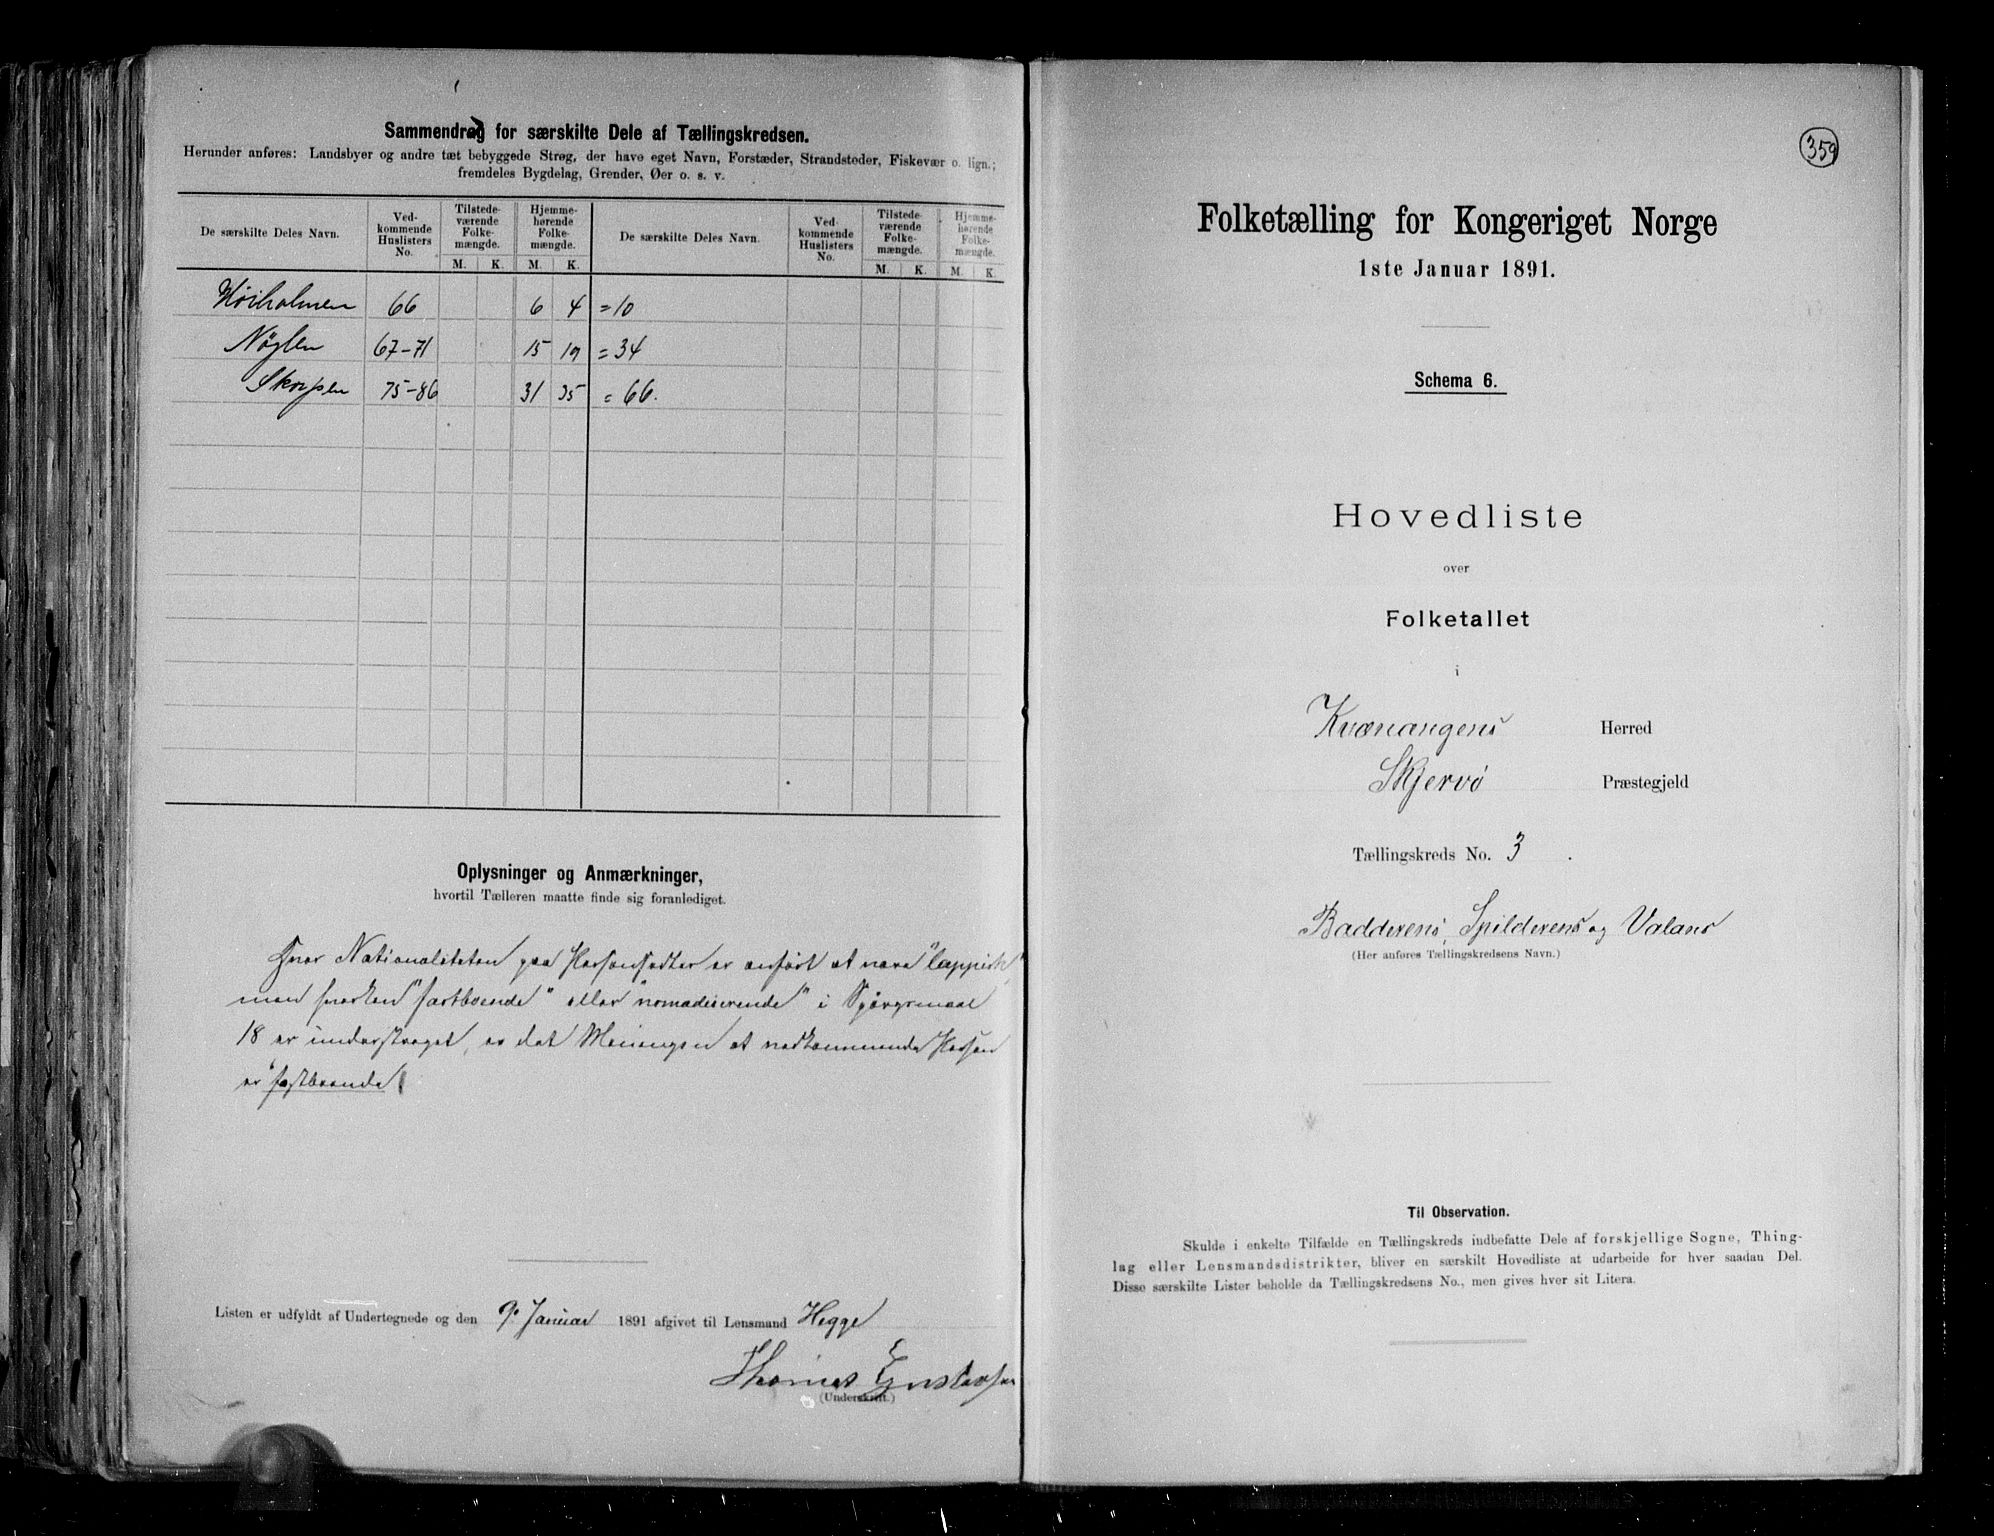 Sammendrag for særskilte Dele af Tællingskredsen.
Herunder anføres: Landsbyer og andre tæt bebyggede Strøg, der have eget Navn, Forstæder, Strandsteder, Fiskevær o. lign.;
fremdeles Bygdelag, Grender, Øer o. s. v.
De særskilte Deles Navn. Ved-kommende Huslisters No. Tilstede-værende Folke-mængde. Hjemme-hørende Folke-mængde. De særskilte Deles Navn. Ved-kommende Huslisters No. Tilstede-værende Folke-mængde. Hjemme-hørende Folke-mængde.
M. K. M. K. M. K. M. K.
66 6 4 =10
Nøglen 67-71 15 19 =34
Skorpen 75-86 31 35 =66.
Oplysninger og Anmærkninger,
hvortil Tælleren maatte finde sig foranlediget.
Hvor Nationaliteten paa Personsedler er anført at være "lappisk"
men hverken "fastboende" eller "nomadiserende" i Spørgsmaal
18 er understreget, er det Meningen at vedkommende Person
er "fastboende"
Listen er udfyldt af Undertegnede og den 9. Januar 1891 afgivet til Lensmand Hegge
Thomas Gustavsen
(Underskrift.)
359
Folketælling for Kongeriget Norge
1ste Januar 1891.
Schema 6.
Hovedliste
over
Folketallet
i
Kvænangens Herred
Skjervø Præstegjeld
Tællingskreds No. 3.
Badderens, Spilderens og Valans
(Her anføres Tællingskredsens Navn.)
Til Observation.
Skulde i enkelte Tilfælde en Tællingskreds indbefatte Dele af forskjellige Sogne, Thing-
lag eller Lensmandsdistrikter, bliver en særskilt Hovedliste at udarbeide for hver saadan Del.
Disse særskilte Lister beholde da Tællingskredsens No., men gives hver sit Litera.